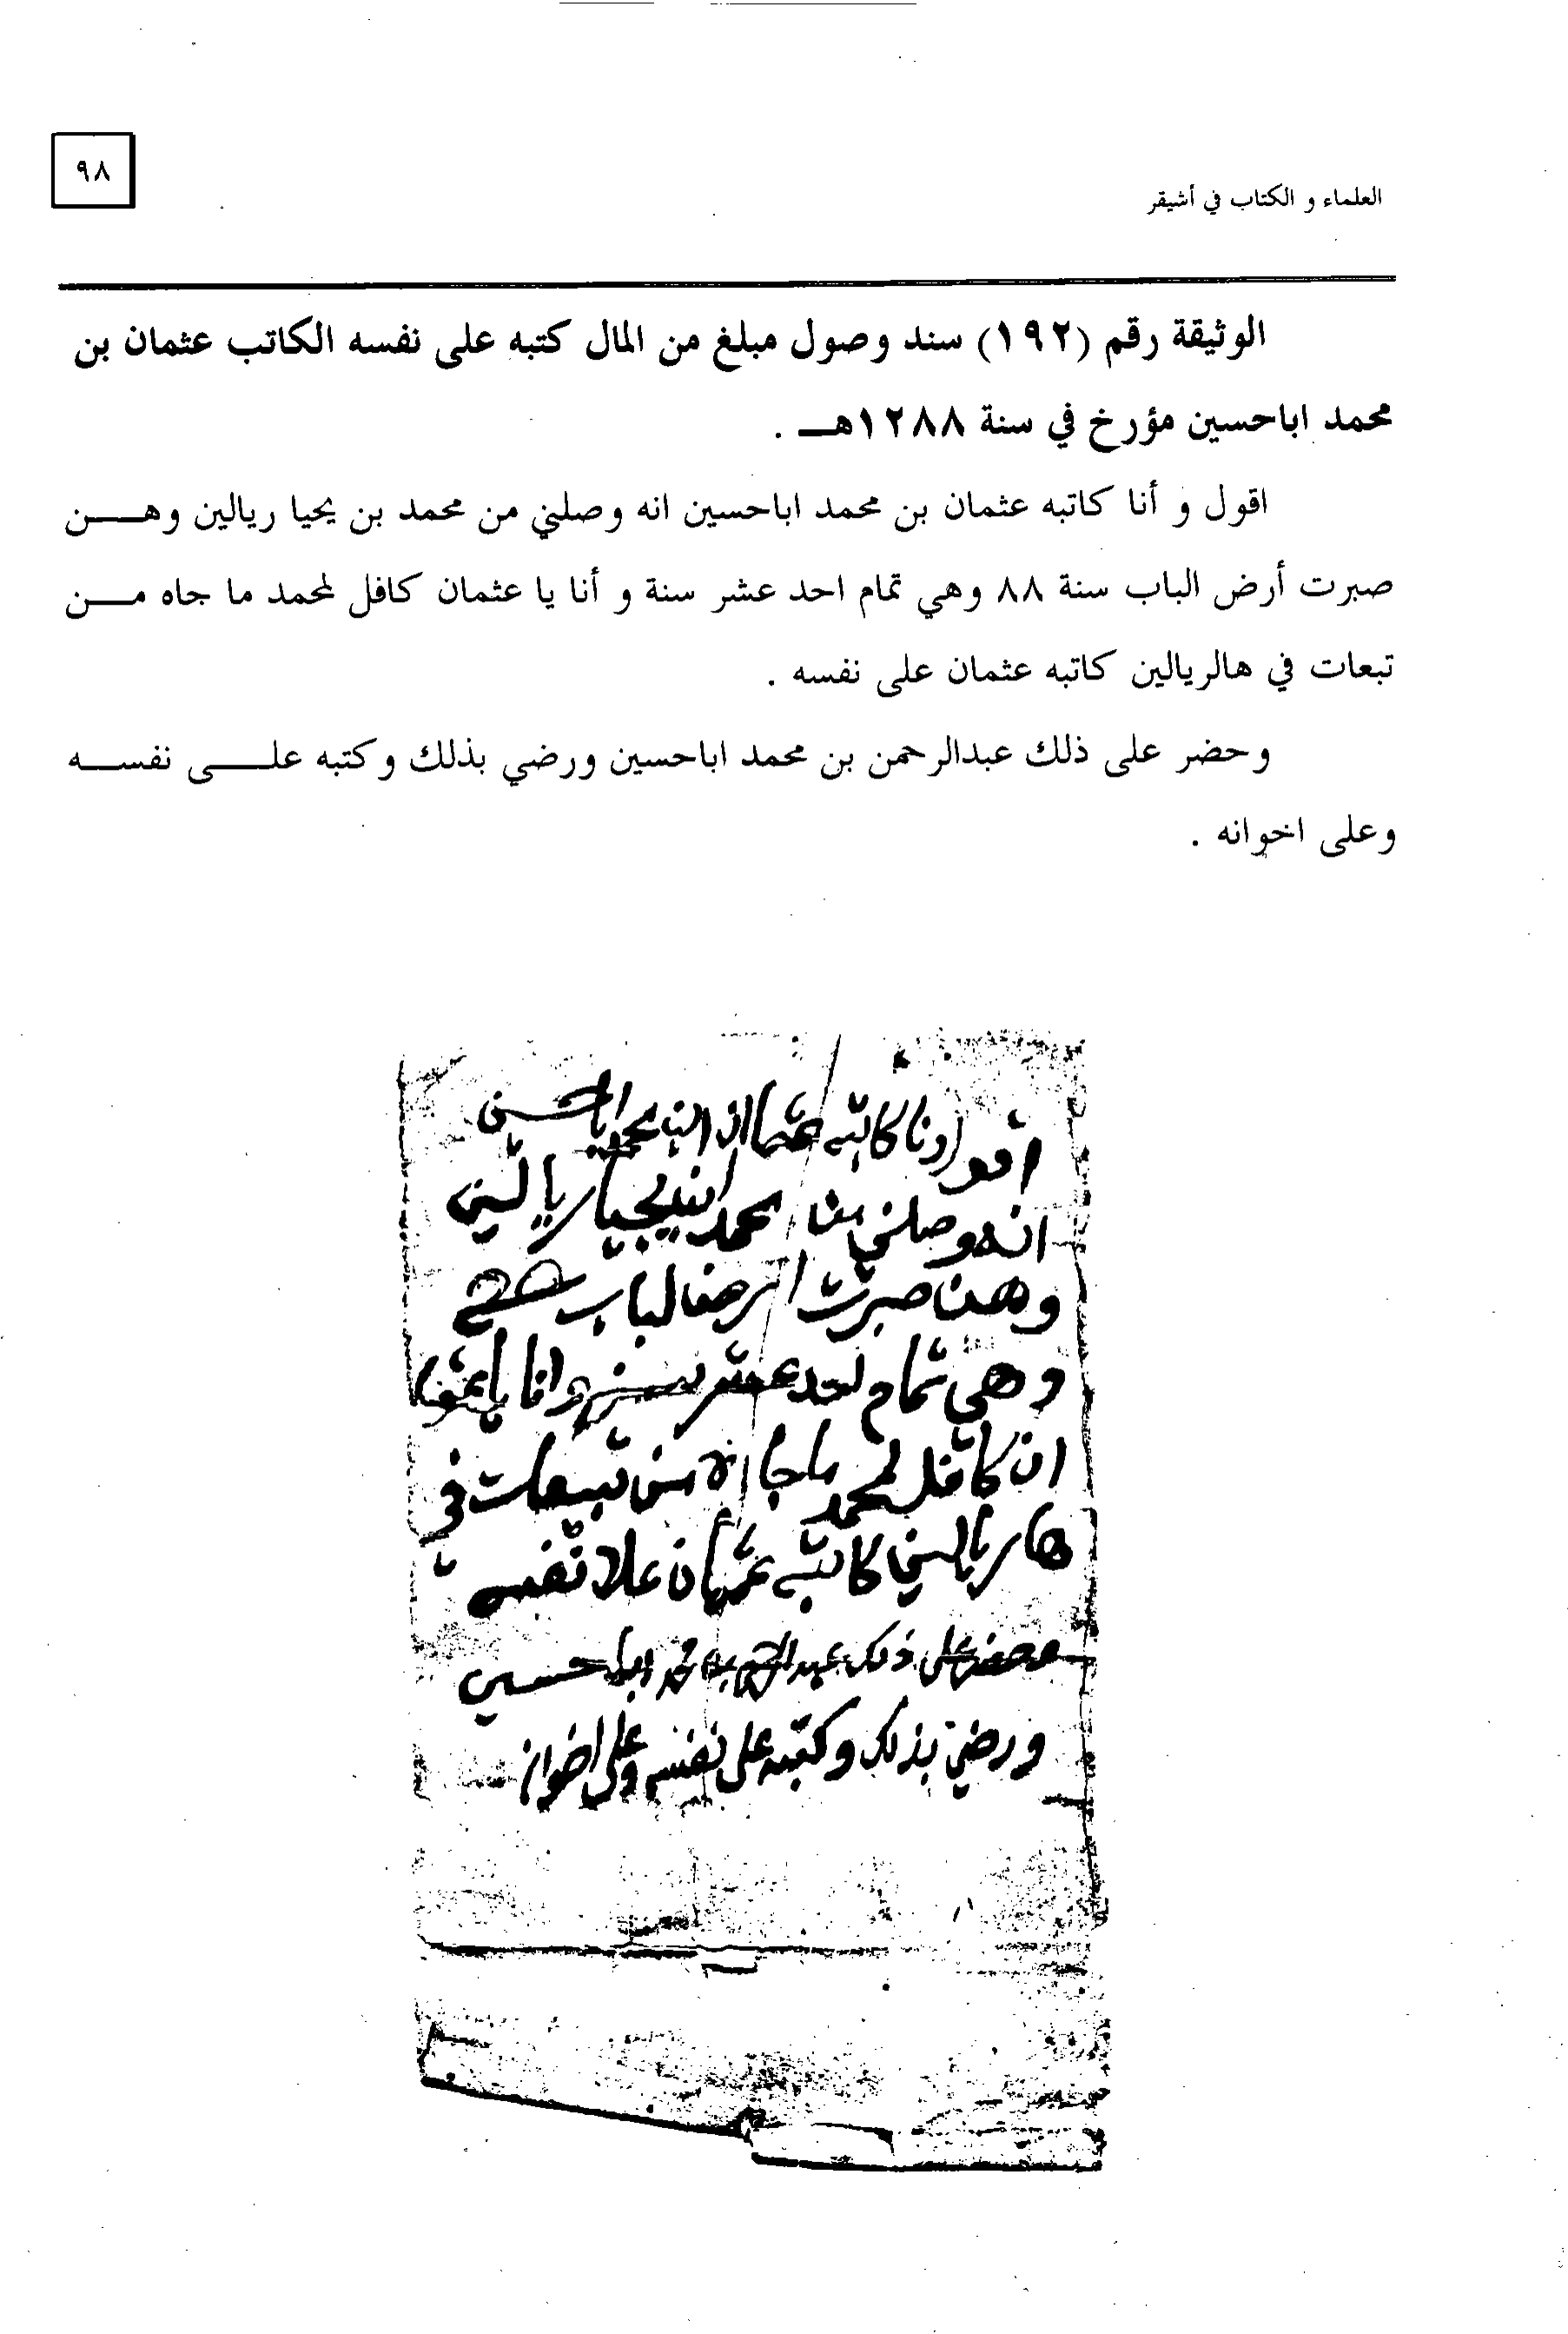 ٩٨
العلماء و الكتاب في أشيقر
الوثيقة رقم (١٩٢) سند وصول مبلغ من المال كتبه على نفسه الكاتب عثمان بن
محمد اباحسين مؤرخ في سنة ١٢٨٨هـ .
اقول و أنا كاتبه عثمان بن محمد اباحسين انه وصلني من محمد بن يحيا ريالين وهن
صبرت أرض الباب سنة ٨٨ وهي تمام احد عشر سنة و أنا يا عثمان كافل لمحمد ما جاه من
تبعات في هالريالين كاتبه عثمان على نفسه .
وحضر على ذلك عبدالرحمن بن محمد اباحسين ورضي بذلك وكتبه على نفسه
وعلى اخوانه .
اقول وانا كاتبه عثمان ابن محمد اباحسين
انه وصلني من محمد ابن يحيا ريالين
وهن صبرت ارض الباب
وهي تمام احد عشر سنة وانا يا عثم
ان كافل لمحمد ما جا من تبعات في
هاريالين كاتبه عثمان علا نفسه
وحضر على ذلك عبدالرحمن بن محمد اباحسين
ورضي بذلك وكتبه على نفسه وعلى اخوانه